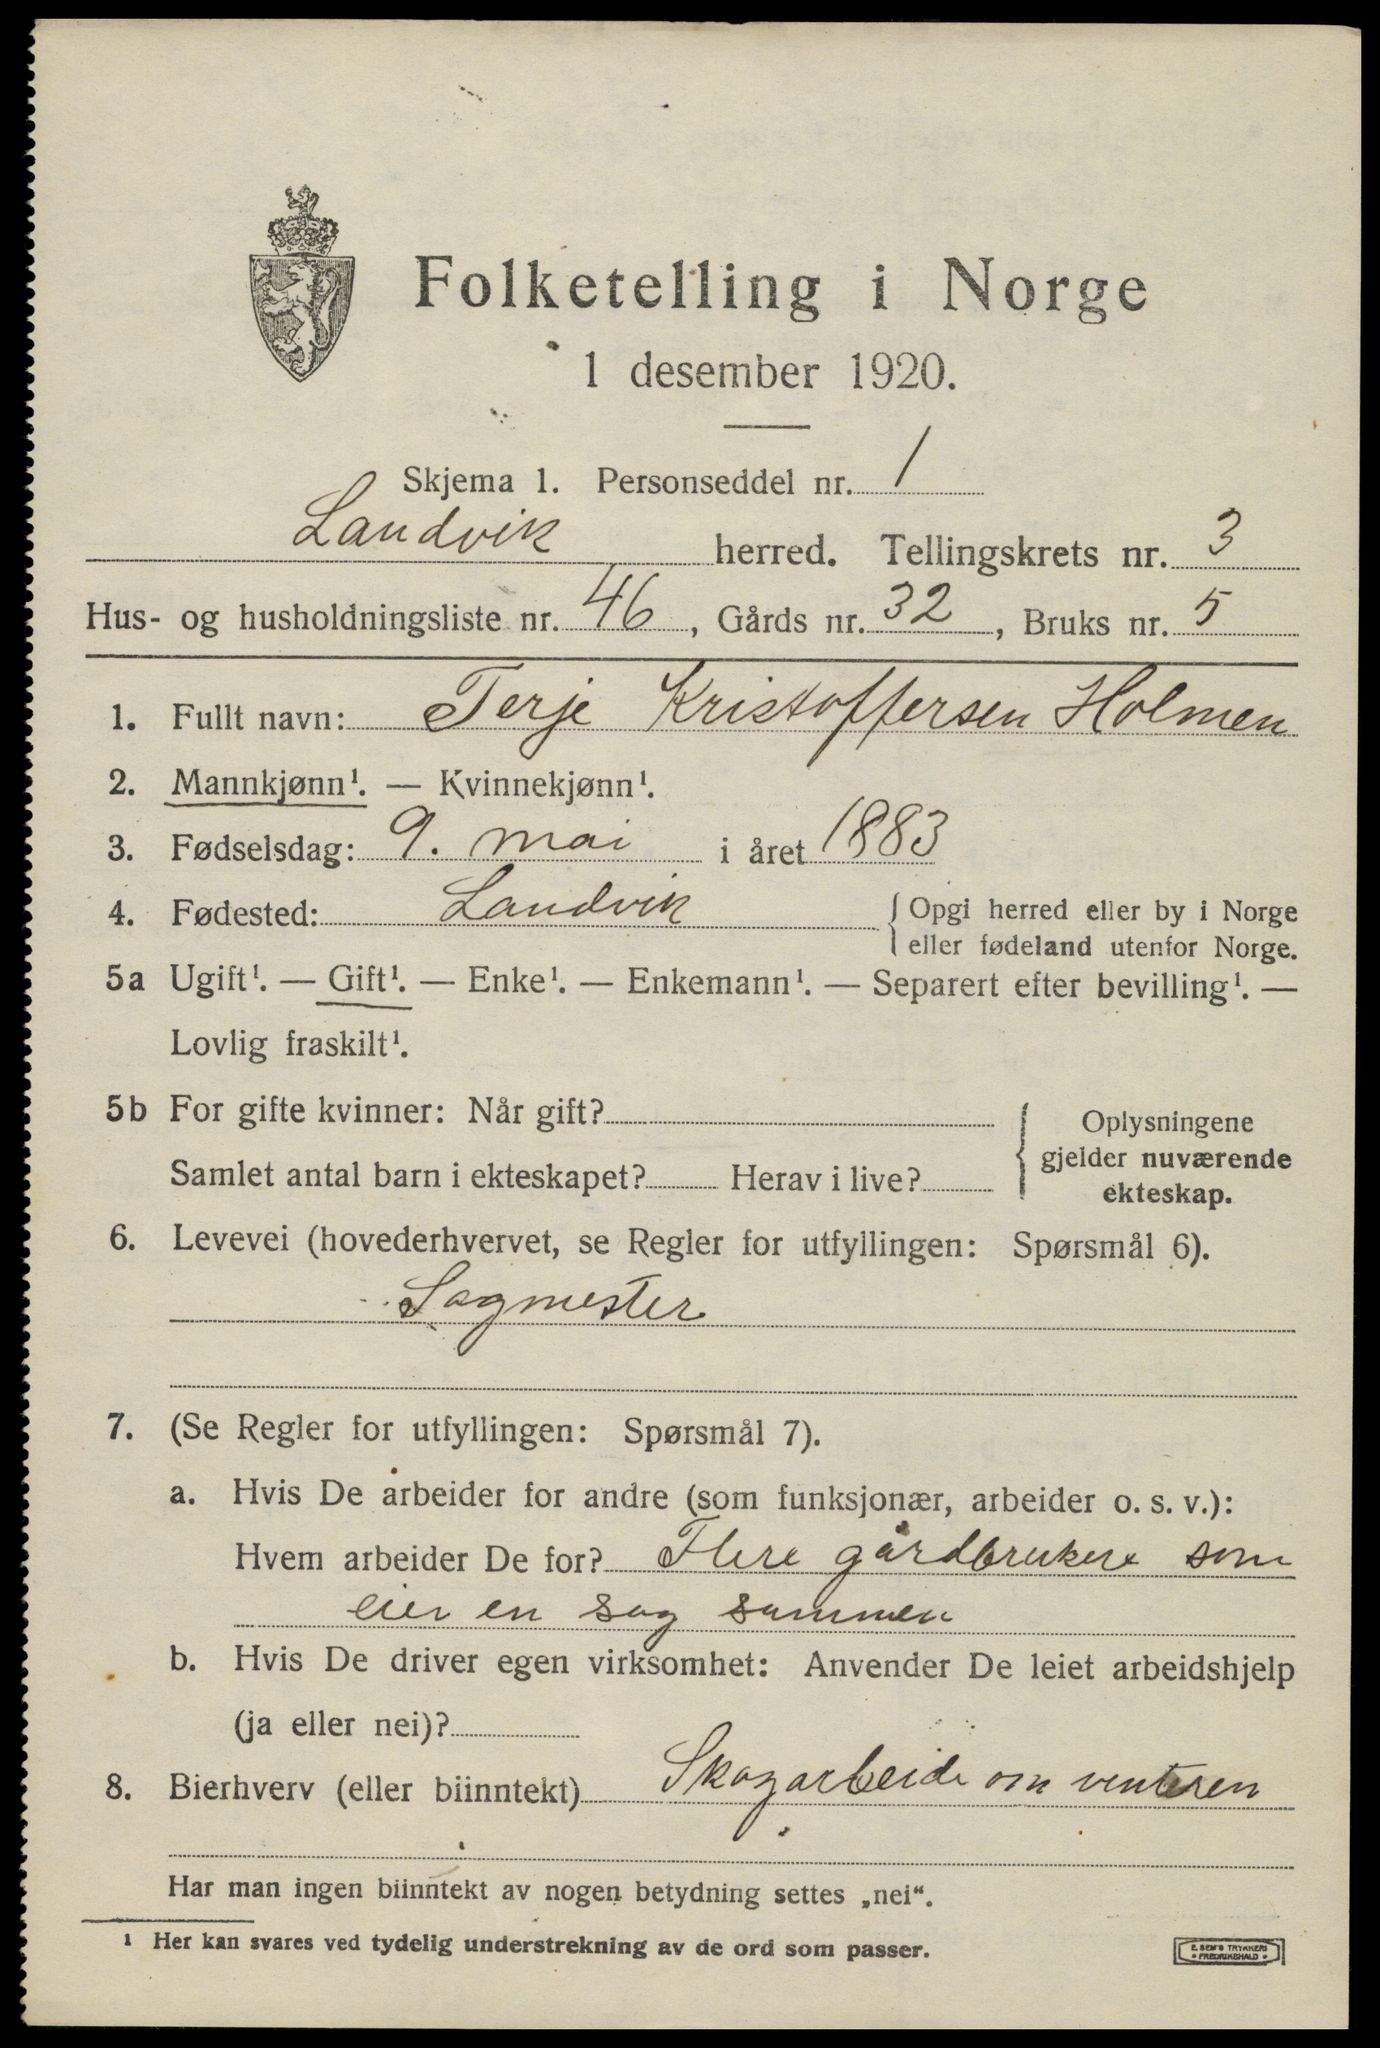 Folketelling i Norge
1 desember 1920.
Skjema 1. Personseddel nr. 1
Landvik herred. Tellingskrets nr. 3
Hus- og husholdningsliste nr. 46, Gårds nr. 32, Bruks nr. 5
1. Fullt navn: Terje Kristoffersen Holmen
2. Mannkjønn¹. — Kvinnekjønn¹.
3. Fødselsdag: 9. mai i året 1883
4. Fødested: Landvik { Opgi herred eller by i Norge
eller fødeland utenfor Norge.
5a Ugift¹. — Gift¹. — Enke¹. — Enkemann¹. — Separert efter bevilling¹. —
Lovlig fraskilt¹.
5b For gifte kvinner: Når gift? { Oplysningene
gjelder nuværende
Samlet antal barn i ekteskapet? Herav i live? ekteskap.
6. Levevei (hovederhvervet, se Regler for utfyllingen: Spørsmål 6).
Sagmester
7. (Se Regler for utfyllingen: Spørsmål 7).
a. Hvis De arbeider for andre (som funksjonær, arbeider o. s. v.):
Hvem arbeider De for? Flere gårdbrukere som
eier en sag sammen
b. Hvis De driver egen virksomhet: Anvender De leiet arbeidshjelp
(ja eller nei)?
8. Bierhverv (eller biinntekt) Skogarbeide om venteren
Har man ingen biinntekt av nogen betydning settes „nei“.
¹ Her kan svares ved tydelig understrekning av de ord som passer.
E. SEM'S TRYKKERI
• FREDRIKSHALD •